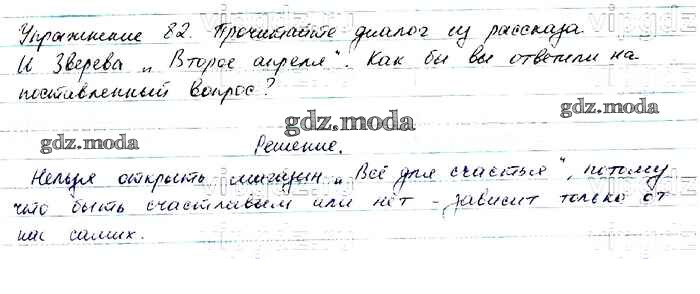 Упражнение 82. Прочитайте диалог из рассказа
И Зверева „Второе апреля“. Как бы вы ответили на
поставленный вопрос?
gdz.moda
gdz.moda
gdz.moda
Решение.
Нельзя открыть магазин „Всё для счастья“, потому
что быть счастливым или нет – зависит только от
нас самих.